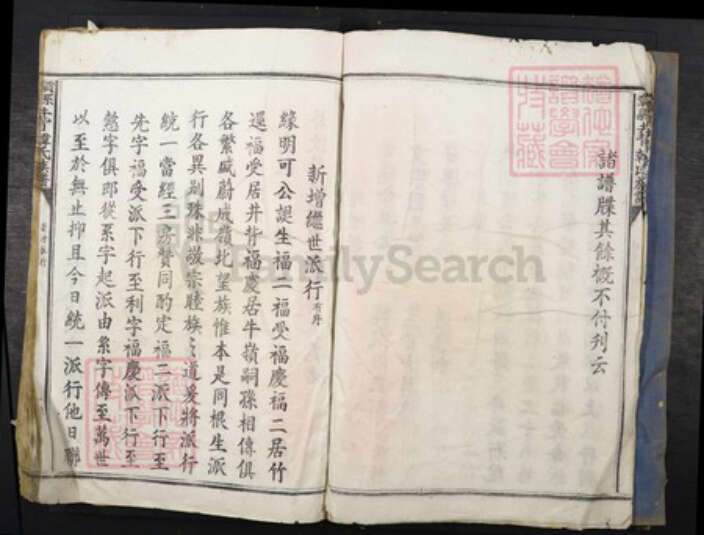 諸譜牒其餘概不付刊云
新增繼世派行有序
緣明可公誕生福二福受福慶福二居竹
邐福受居井背福慶居牛嶺嗣孫相傳俱
各繁盛蔚成嶺北望族惟本是同根生派
行各異別殊非敬宗睦族之道爰將派行
統一當經三房贊同酌定福二派下行至
先字福受派下行至利字福慶派下行至
懋字俱卽從系字起派由系字傳至萬世
以至於無止抑且今日統一派行他日聯
FamilySearch